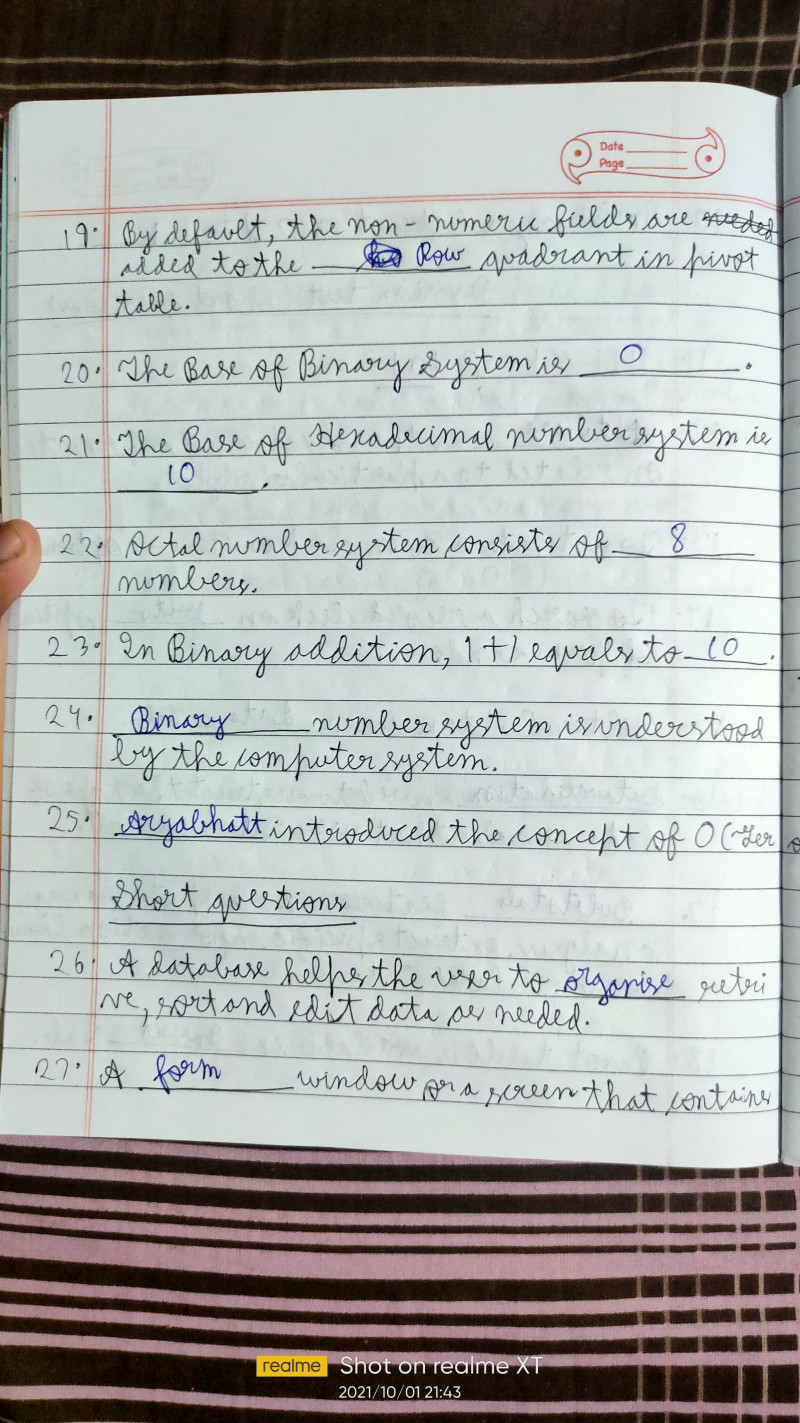 Date
Page
19. By default, the non-numeric fields are needed
added to the Row quadrant in pivot
table.
20. The Base of Binary System is 0.
21. The Base of Hexadecimal number system is
10.
22. Octal number system consists of 8
numbers.
23. In Binary addition, 1+1 equals to 10.
24. Binary number system is understood
by the computer system.
25. Aryabhatt introduced the concept of 0 (Zer
Short questions
26. A database helps the user to organise retri
ve, sort and edit data as needed.
27. A form window or a screen that contains
realme Shot on realme XT
2021/10/01 21:43